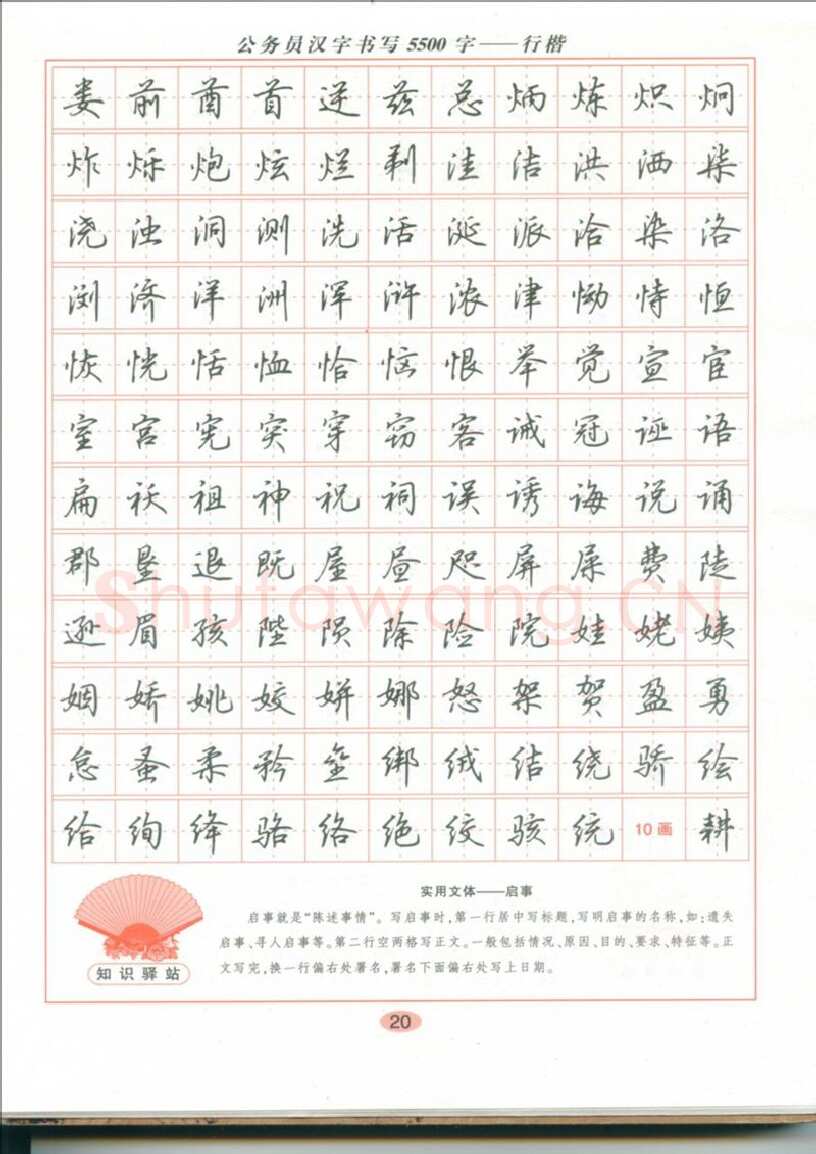 公务员汉字书写 5500 字——行楷
娄 前 酋 首 逆 兹 总 炳 炼 炽 炯
炸 烁 炮 炫 烂 剃 洼 洁 洪 洒 柒
浇 浊 洞 测 洗 活 涎 派 洽 染 洛
浏 济 洋 洲 浑 浒 浓 津 恸 恃 恒
恢 恍 恬 恤 恰 恼 恨 举 觉 宣 宦
室 宫 宪 突 穿 窃 客 诫 冠 诬 语
扁 袄 祖 神 祝 祠 误 诱 诲 说 诵
郡 垦 退 既 屋 昼 咫 屏 屎 费 陡
逊 眉 孩 陛 陨 除 险 院 娃 姥 姨
姻 娇 姚 姣 姘 娜 怒 架 贺 盈 勇
怠 蚤 柔 矜 垒 绑 绒 结 绕 骄 绘
给 绚 绛 骆 络 绝 绞 骇 统 10画 耕
Shufawang.CN
实用文体——启事
启事就是“陈述事情”。写启事时,第一行居中写标题,写明启事的名称,如:遗失
启事、寻人启事等。第二行空两格写正文。一般包括情况、原因、目的、要求、特征等。正
文写完,换一行偏右处署名,署名下面偏右处写上日期。
知识驿站
20